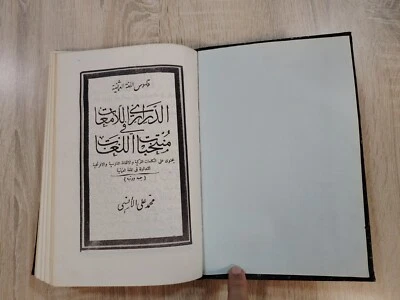 قاموس اللغة العثمانية
الدراري اللامعات
في
منتخبات اللغات
يحتوي على الكلمات التركية والألفاظ الفارسية والافرنجية
المتداولة في اللغة التركية
محمد علي الأنسي